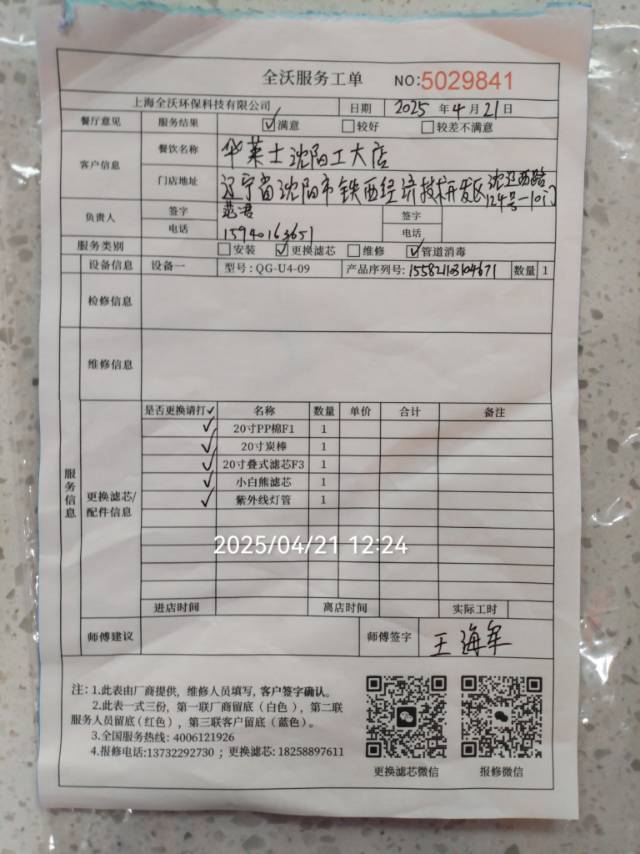 全沃服务工单 NO:5029841
上海全沃环保科技有限公司 日期 2025 年 4 月 21 日
餐厅意见 服务结果 ☑满意 □较好 □较差不满意
客户信息 餐饮名称 华莱士沈阳工大店
门店地址 辽宁省沈阳市铁西经济技术开发区沈辽西路
124号-10门
负责人 签字 签字
电话 15940163651 电话
服务类别 □安装 ☑更换滤芯 □维修 ☑管道消毒
设备信息 设备一 型号:QG-U4-09 产品序列号:155821103104671 数量 1
检修信息
维修信息
服务信息
更换滤芯/
配件信息
是否更换请打✓ 名称 数量 单价 合计 备注
✓ 20寸PP棉F1 1
✓ 20寸炭棒 1
✓ 20寸叠式滤芯F3 1
✓ 小白熊滤芯 1
✓ 紫外线灯管 1
2025/04/21 12:24
进店时间 离店时间 实际工时
师傅建议 师傅签字 王海军
注:1.此表由厂商提供,维修人员填写,客户签字确认。
2.此表一式三份,第一联厂商留底(白色),第二联
服务人员留底(红色),第三联客户留底(蓝色)。
3.全国服务热线: 4006121926
4.报修电话:13732292730 ; 更换滤芯: 18258897611
更换滤芯微信 报修微信